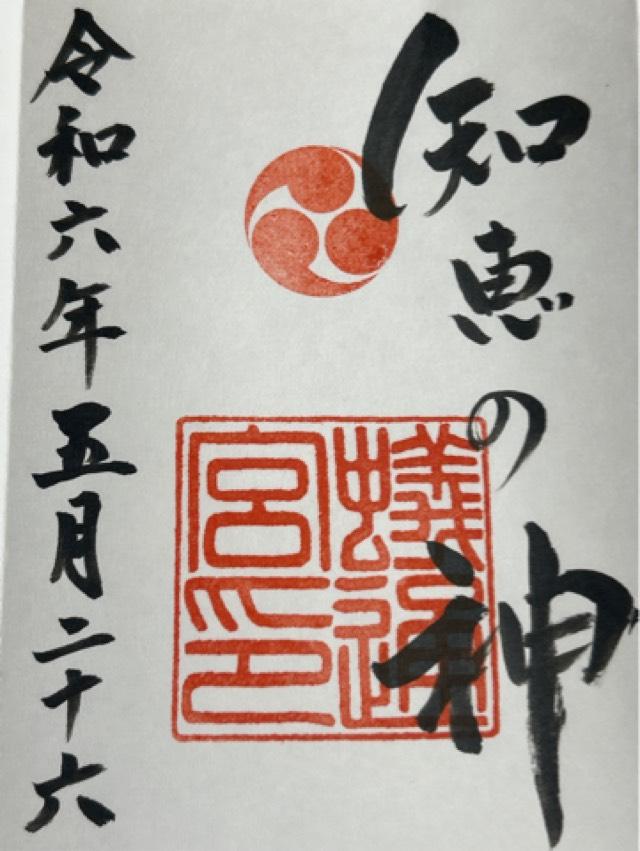 知恵の神
蟻通
宮印
令和六年五月二十六